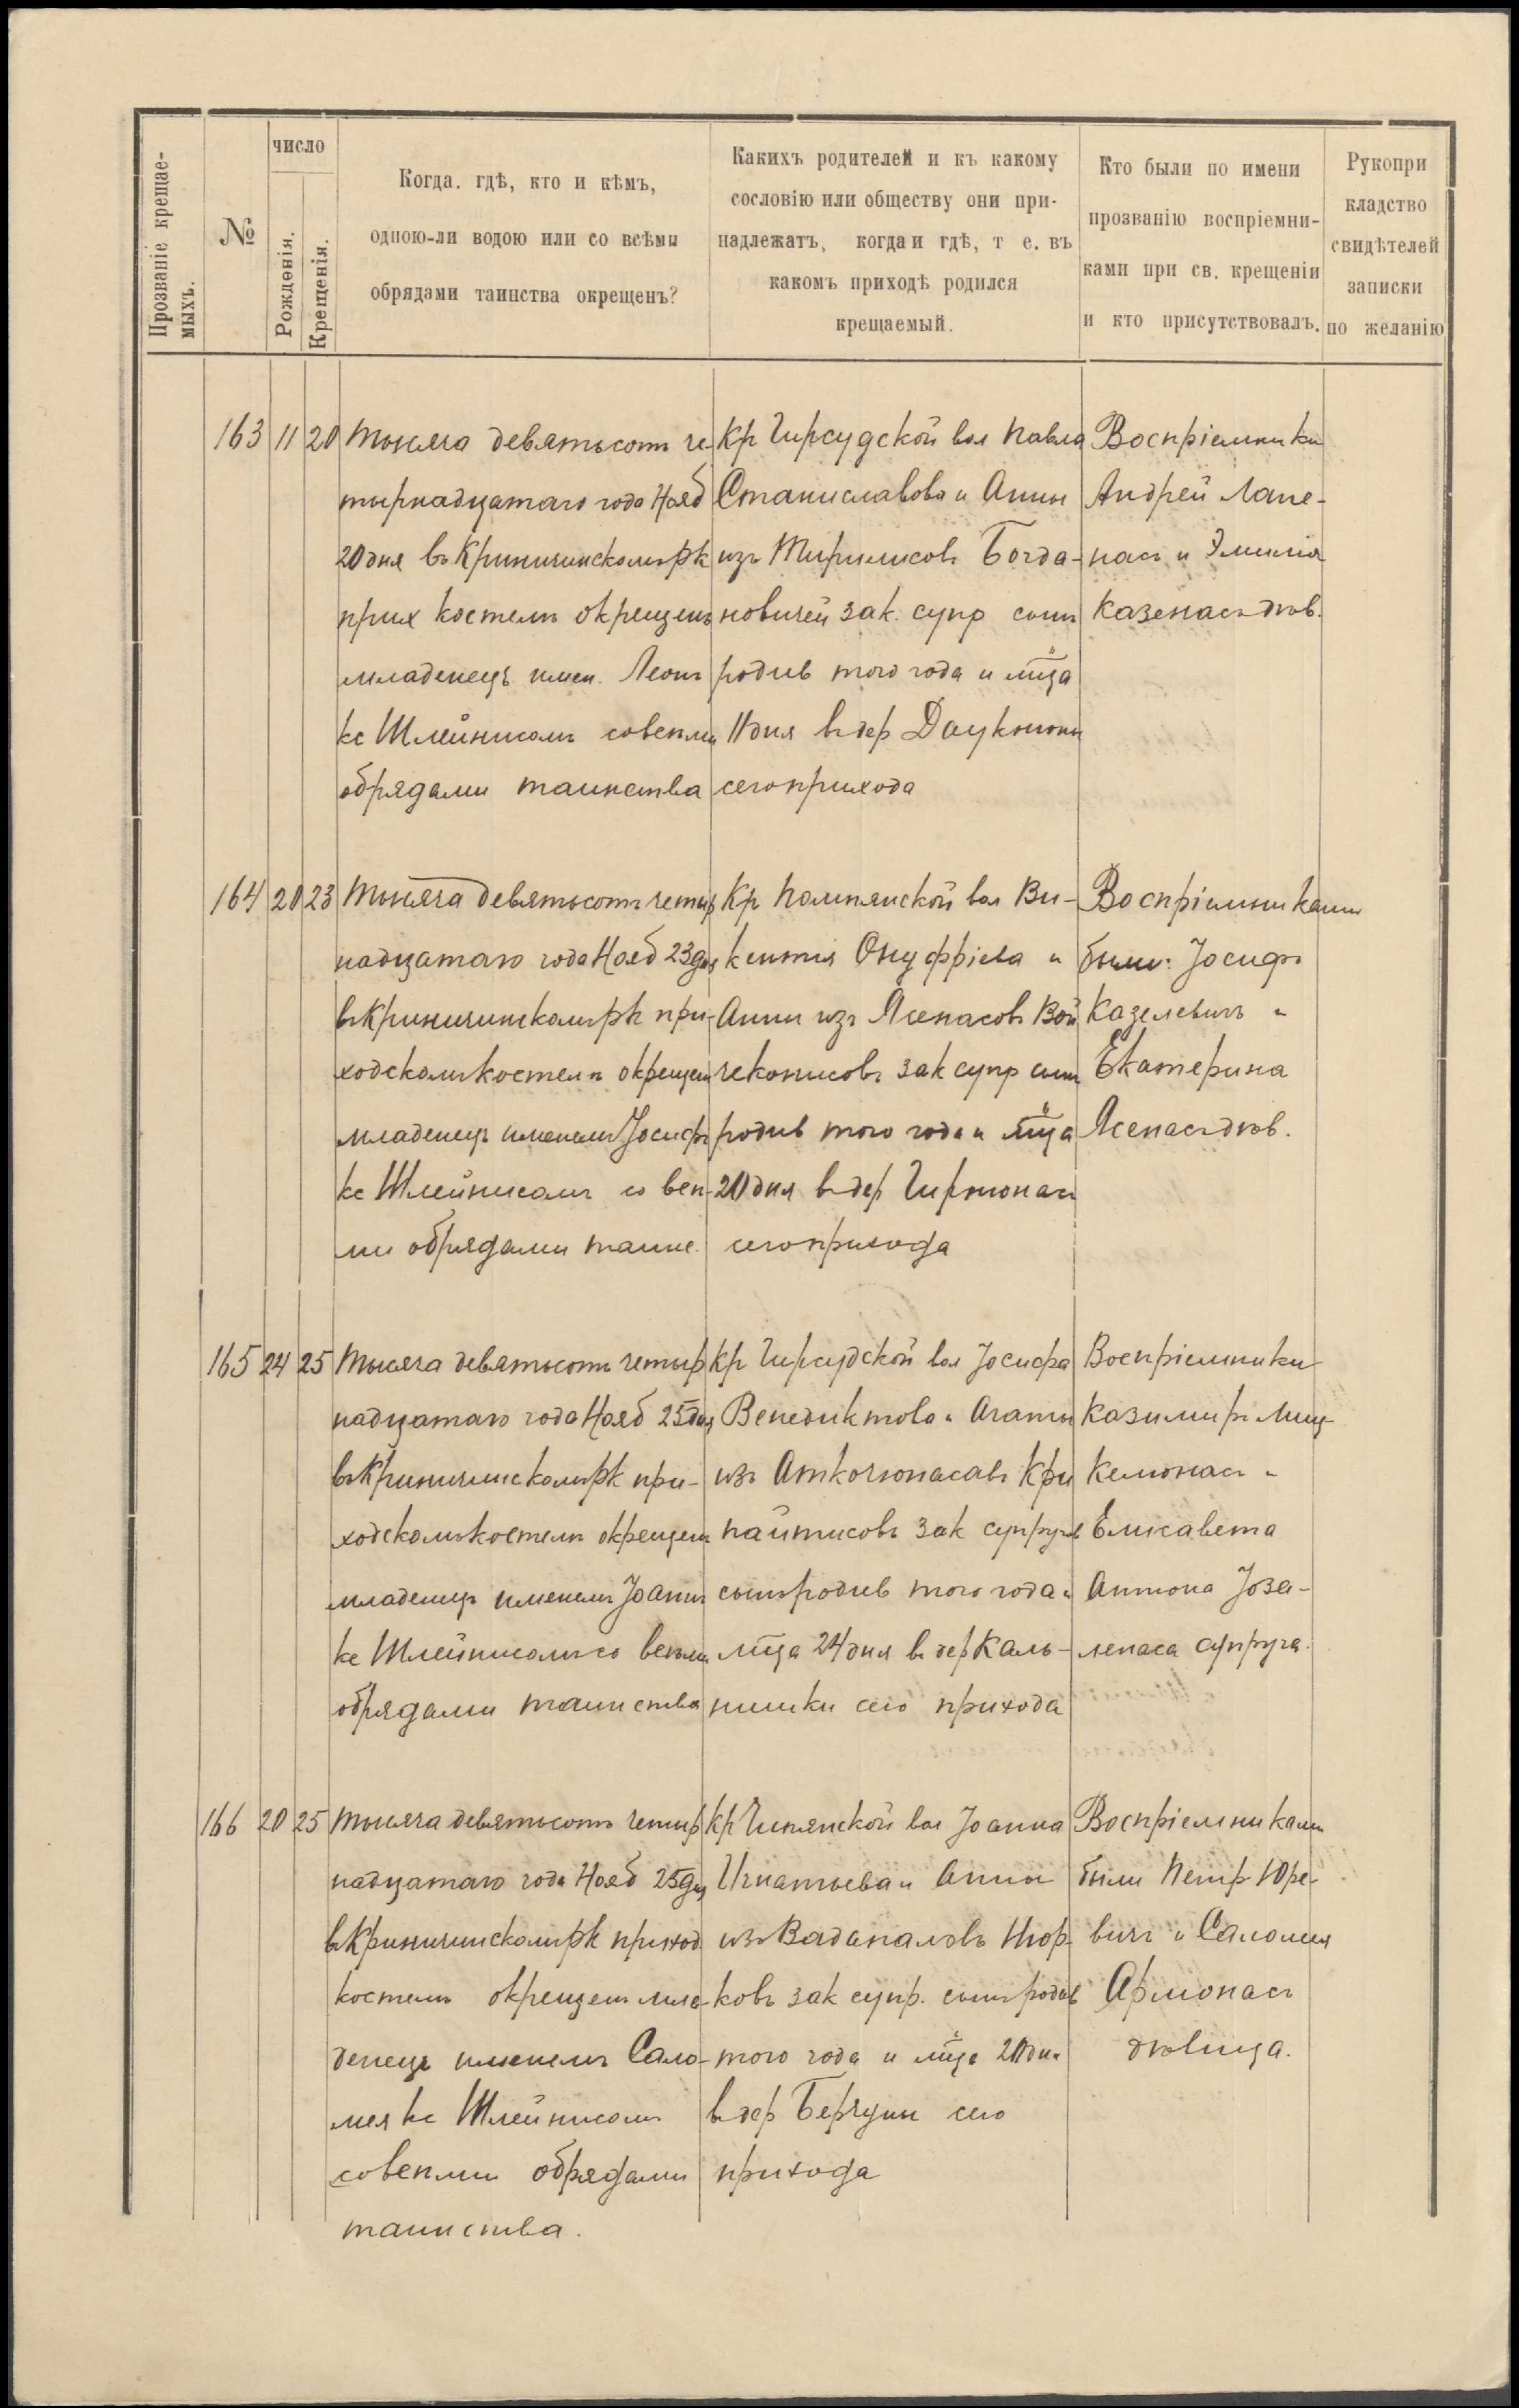 Прозваніе крещае-
мыхъ.
№
число
Рожденія.
Крещенія.
Когда, гдѣ, кто и кѣмъ,
одною-ли водою или со всѣми
обрядами таинства окрещенъ?
Какихъ родителей и къ какому
сословію или обществу они при-
надлежатъ, когда и гдѣ, т е. въ
какомъ приходѣ родился
крещаемый.
Кто были по имени
прозванію воспріемни-
ками при св. крещеніи
и кто присутствовалъ.
Рукопри
кладство
свидѣтелей
записки
по желанію
163 11 20
Тысяча девятьсотъ че-
тырнадцатаго года Нояб
20 дня въ Криничинскомъ рк
прих костелѣ окрещенъ
младенецъ имен. Леонъ
кс Шлейнисомъ со всѣми
обрядами таинства
Кр Гирсудской вол Павла
Станиславова и Анны
изъ Богда-
новичей зак. супр сынъ
родив того года и мца
11 дня въ дер Даукнюны
сего прихода
Воспріемники
Андрей Лапе-
насъ и Эмилія
Казенасъ дѣв.
164 20 23
Тысяча девятьсотъ четыр
надцатаго года Нояб 23 дня
въ Криничинскомъ рк при-
ходскомъ костелѣ окрещенъ
младенецъ именемъ Іосифъ
кс Шлейнисомъ со всѣ-
ми обрядами таинс.
Кр Помпянской вол Ви-
кентія Онуффріева и
Анны изъ Ясенасовъ Вой
чеконисовъ зак супр сынъ
родив того года и мца
20 дня въ дер Гиртонасъ
сего прихода
Воспріемниками
были: Іосифъ
Казелевичъ и
Екатерина
Ясенасъ дѣв.
165 24 25
Тысяча девятьсотъ четыр
надцатаго года Нояб 25 дня
въ Криничинскомъ рк при-
ходскомъ костелѣ окрещенъ
младенецъ именемъ Іоаннъ
кс Шлейнисомъ со всѣми
обрядами таинства
Кр Гирсудской вол Іосифа
Венедиктова и Агаты
изъ Аткочюнасавъ Кри
пайтисовъ зак супругов
сынъ родив того года и
мца 24 дня въ дер Каль-
нишки сего прихода
Воспріемники
Казимиръ Миц-
келюнасъ и
Елисавета
Антона Іоза-
лепаса супруга.
166 20 25
Тысяча девятьсотъ четыр
надцатаго года Нояб 25 дня
въ Криничинскомъ рк приход
костелѣ окрещенъ мла-
денецъ именемъ Сало-
мея кс Шлейнисомъ
со всѣми обрядами
таинства.
Кр вол Іоанна
Игнатьева и Анны
изъ Вадапаловъ Нюр-
ковъ зак супр. сынъ родив
того года и мца 20 дня
въ дер Берчуны сего
прихода
Воспріемниками
были Петръ Юре-
вичъ и Саломея
Армонасъ
дѣвица.